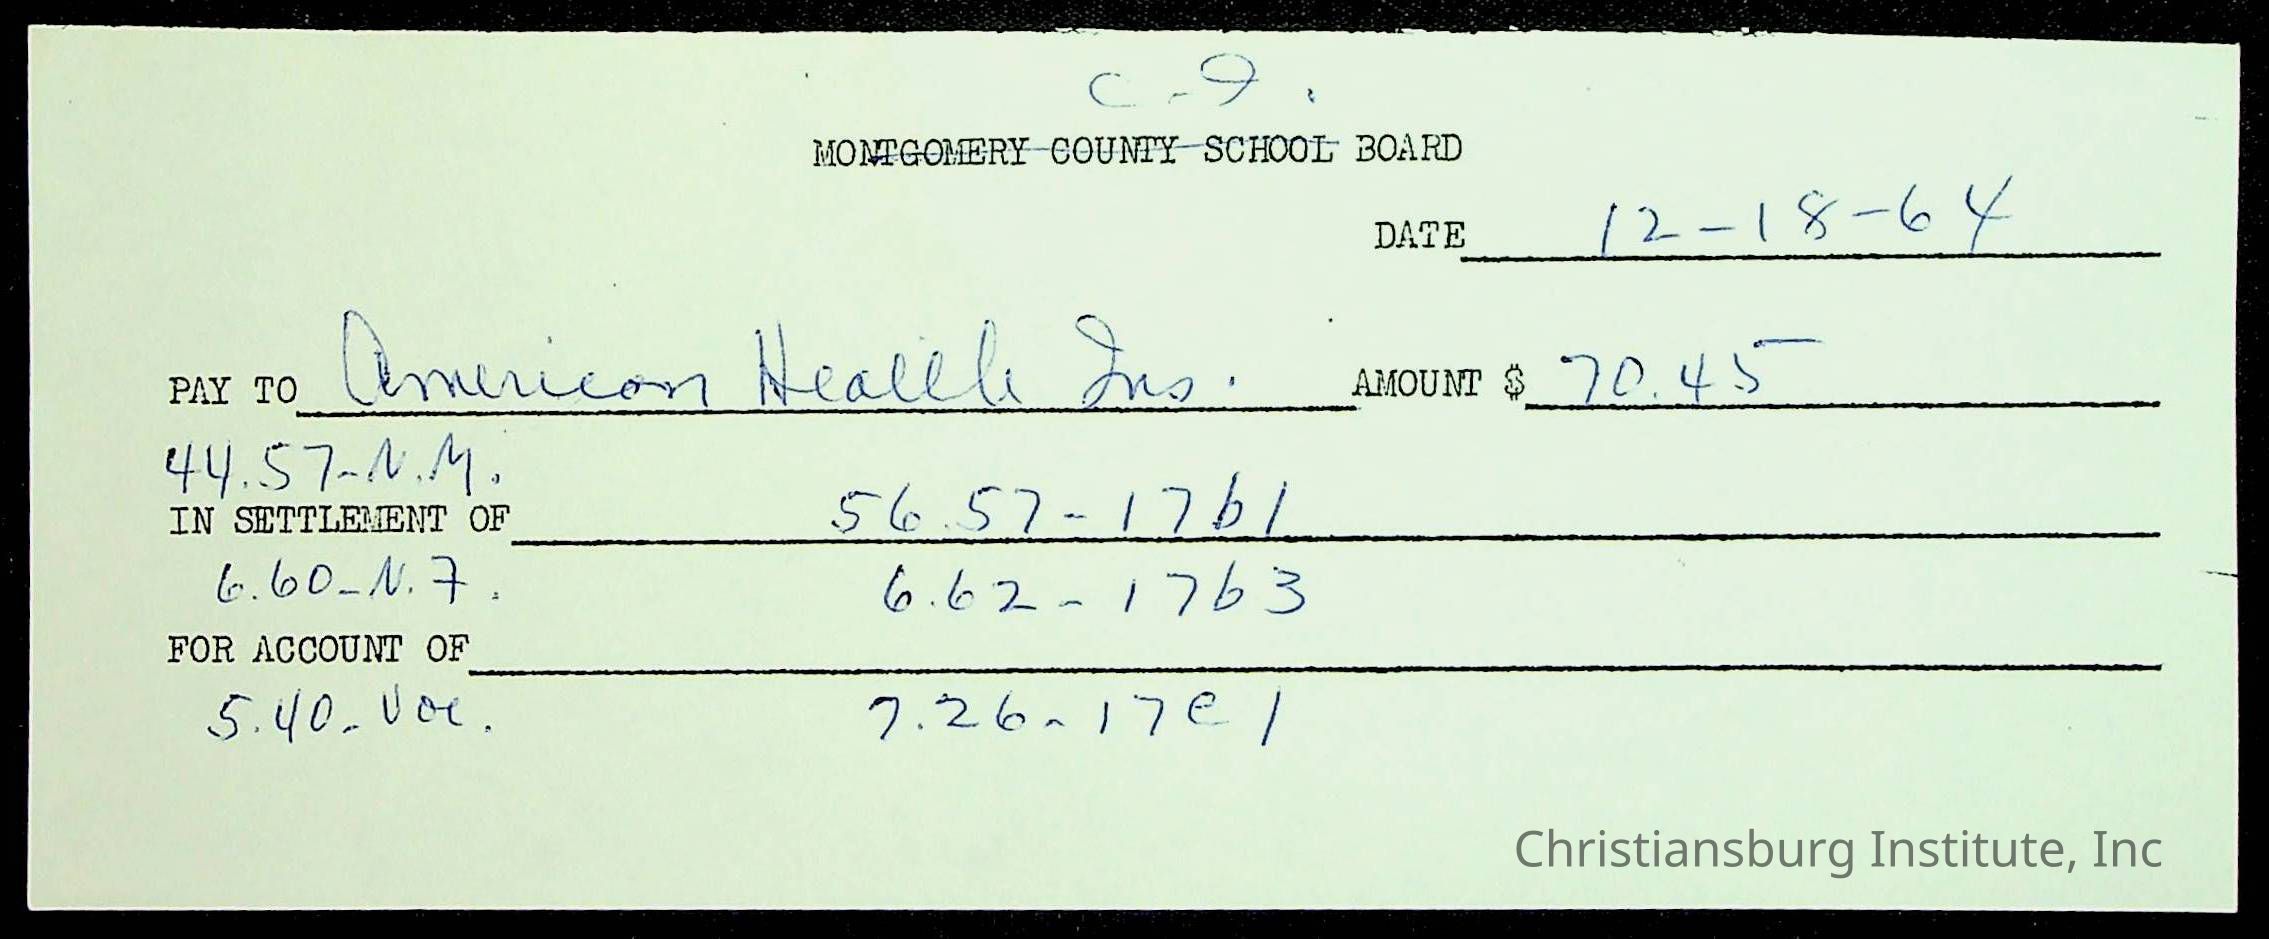 C-I.
MONTGOMERY COUNTY SCHOOL BOARD
DATE 12-18-64
PAY TO American Health Ins. AMOUNT $ 70.45
44.57-N.M.
IN SETTLEMENT OF 56.57-17b1
6.60-N.F. 6.62-17b3
FOR ACCOUNT OF
5.40-Voc. 7.26-17e1
Christiansburg Institute, Inc